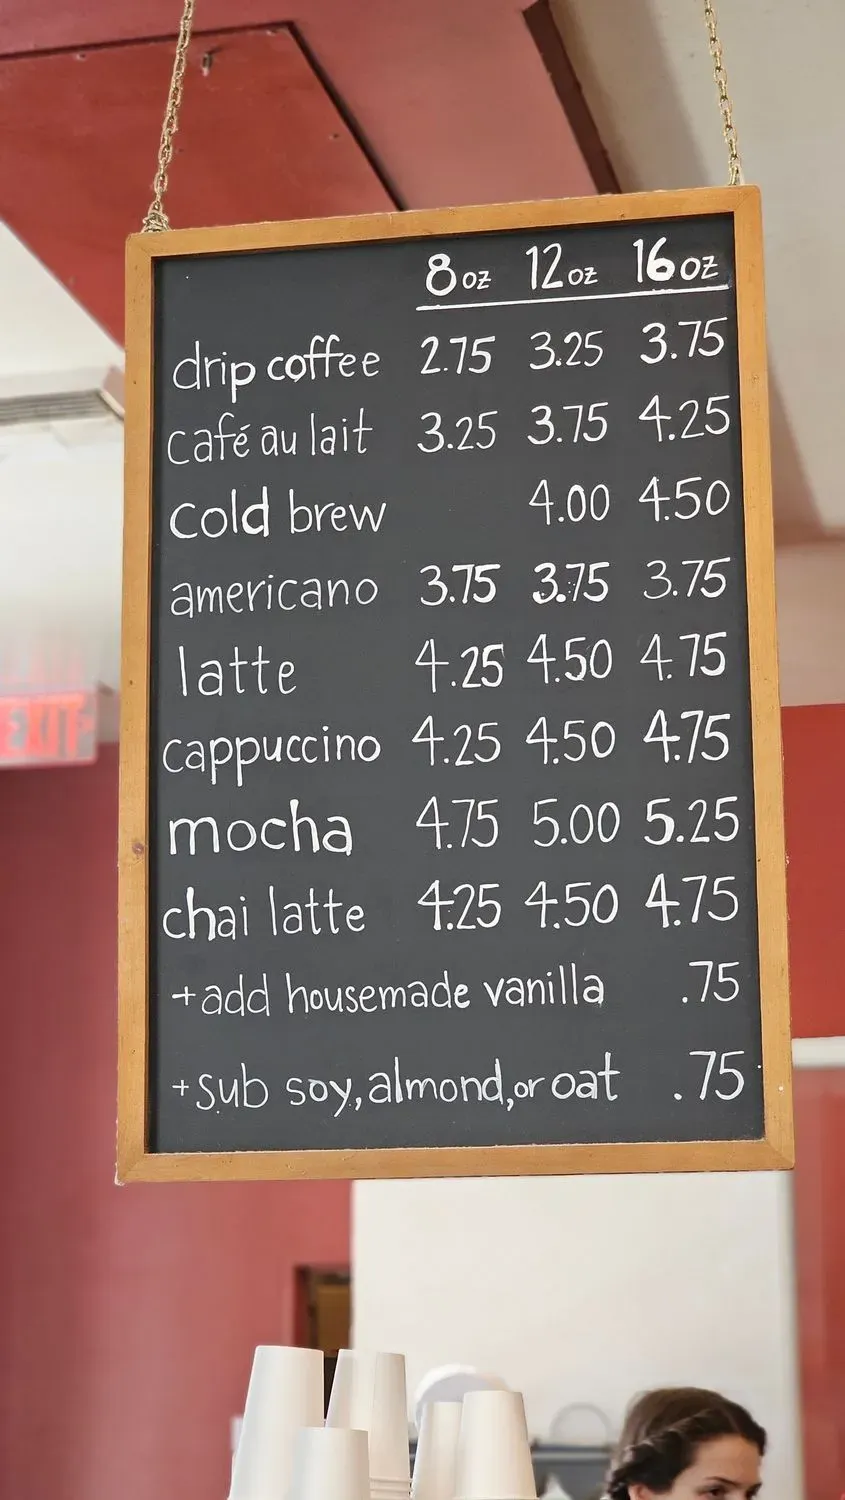 8oz 12oz 16oz
drip coffee 2.75 3.25 3.75
café au lait 3.25 3.75 4.25
cold brew 4.00 4.50
americano 3.75 3.75 3.75
latte 4.25 4.50 4.75
cappuccino 4.25 4.50 4.75
mocha 4.75 5.00 5.25
chai latte 4.25 4.50 4.75
+add housemade vanilla .75
+sub soy, almond, or oat .75